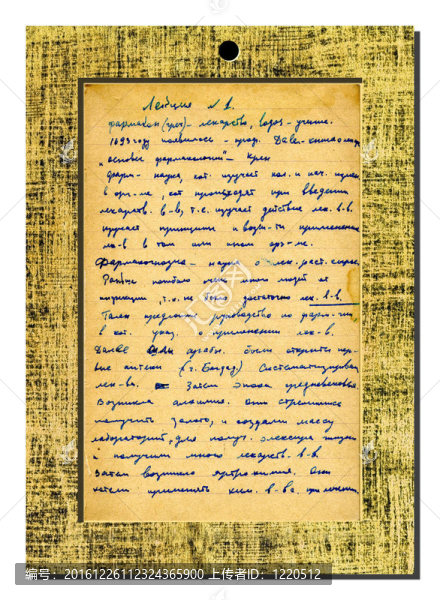 Лекция №1.
фармакон (греч) – лекарство, логос – учение.
1693 году появилось – проф. Дале – книга
основе фармакологии –
фарм – наука, кот. изучает кол. и кач.
в орг-ме, кот происходят при введении
лекарств. в-в, т.е. изучает действие лек. в-в.
изучает принципы применения
лек-в в том или ином орг-ме.
Фармакогнозия – наука о лек. раст. сырье.
Раньше погибало очень много людей от
инфекции, т.к. не было достаточно лек. в-в.
Гален предложил руководство по
в кот. указ. о применении лек-в.
Далее арабы. были открыты пер-
вые аптеки (г. Багдад) Систематизировал
лек-ва. Затем эпоха средневековья
Возникла алхимия. они стремились
получить золото, и создали массу
лабораторий, для получ. эликсира жизни
и получили много лекарств. в-в
Затем возникла ятрохимия. Они
хотели применять хим. в-ва. при лечении.
编号：20161226112324365900 上传者ID：1220512